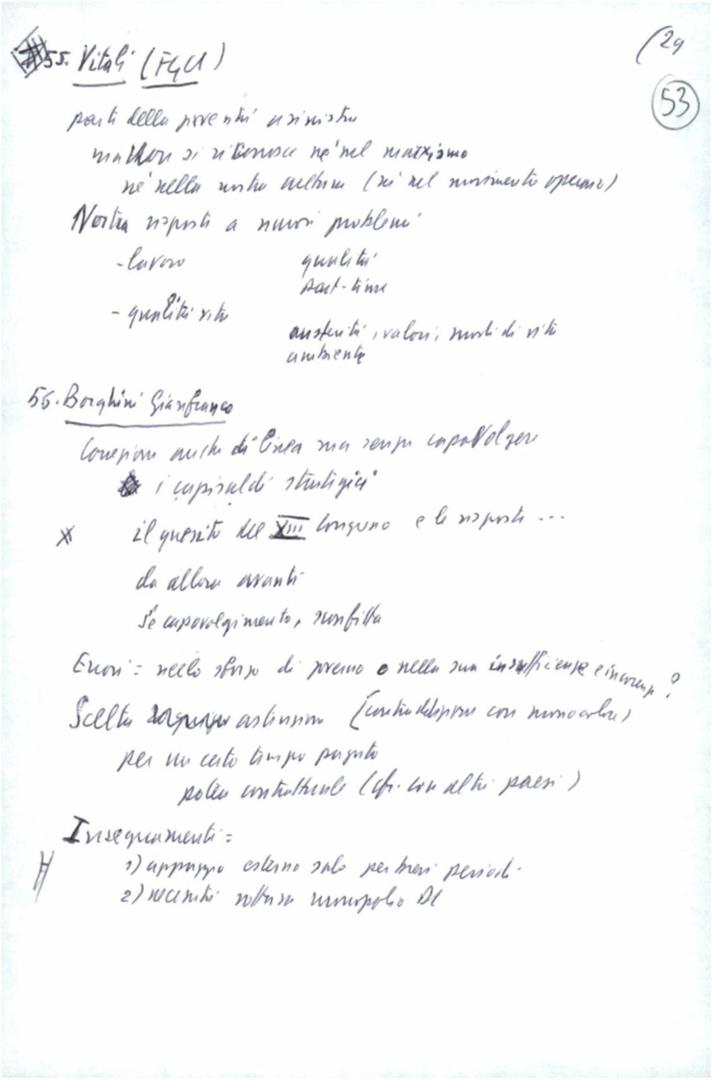 (29
53
55. Vitali (FGCI)
parti della gioventù a sinistra
ma non si riconosce né nel marxismo
né nella nostra cultura (né nel movimento operaio)
Nostra risposta a nuovi problemi
- lavoro qualità
part-time
- qualità vita
austerità, valori, modi di vita
ambiente
56. Borghini Gianfranco
Correzioni anche di linea ma senza capovolgere
i capisaldi strategici
x il quesito del XIII Congresso e le risposte ...
da allora avanti
Se capovolgimento, sconfitta
Errori = nello sforzo di governo o nella sua insufficienza e incoerenza?
Scelta astensione (contraddizione con monocolore)
per un certo tempo pagato
potea contrattuale (cfr. con altri paesi)
Insegnamenti =
1) appoggio esterno solo per brevi periodi
2) necessità rottura monopolio DC